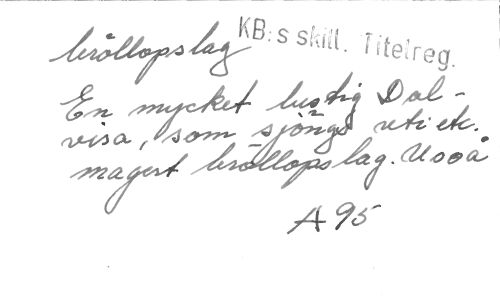 bröllopslag
KB:s skill. Titelreg.
En mycket lustig Dal-
visa, som sjöngs uti ett.
magert bröllopslag. U o o å
A 95